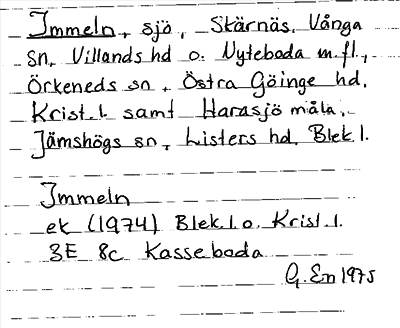 Immeln, sjö, Skärnäs, Vånga
sn, Villands hd o. Nyteboda m.fl.,
Örkeneds sn, Östra Göinge hd,
Krist.l. samt Harasjömåla,
Jämshögs sn, Listers hd, Blek.l.
Immeln
ek (1974) Blek.l.o. Krist.l.
3E 8c Kasseboda
G. En 1975